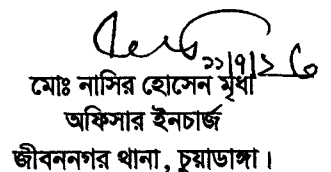 ২১/৭/২৬
মোঃ নাসির হোসেন মৃধা
অফিসার ইনচার্জ
জীবননগর থানা, চুয়াডাঙ্গা।